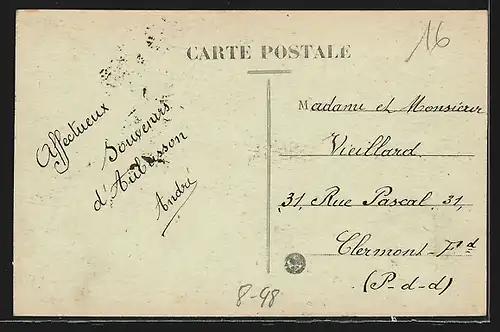 CARTE POSTALE
16
Affectueux
Souvenirs
d'Aubusson
André
Madame et Monsieur
Vieillard
31, Rue Pascal, 31,
Clermont-Fd
(P-d-d)
8-98